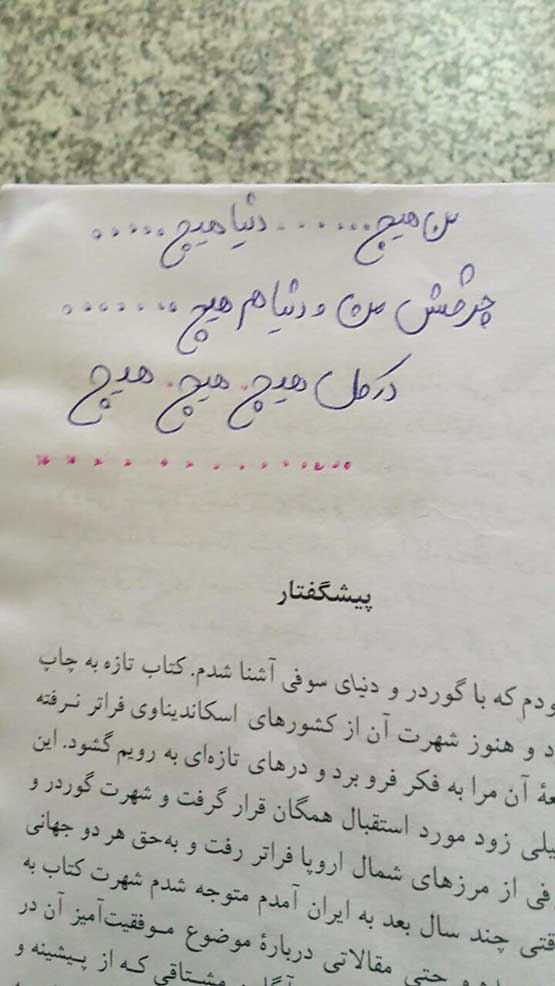 من هیچ....... دنیا هیچ.....
چرخش من و دنیا هم هیچ.......
در کل هیچ. هیچ. هیچ
پیشگفتار
ودم که با گوردر و دنیای سوفی آشنا شدم. کتاب تازه به چاپ
د و هنوز شهرت آن از کشورهای اسکاندیناوی فراتر نرفته
عهٔ آن مرا به فکر فرو برد و درهای تازه‌ای به رویم گشود. این
یلی زود مورد استقبال همگان قرار گرفت و شهرت گوردر و
فی از مرزهای شمال اروپا فراتر رفت و به‌حق هر دو جهانی
قتی چند سال بعد به ایران آمدم متوجه شدم شهرت کتاب به
ده و حتی مقالاتی دربارهٔ موضوع موفقیت‌آمیز آن در
مشتاقی که از پیشینه و